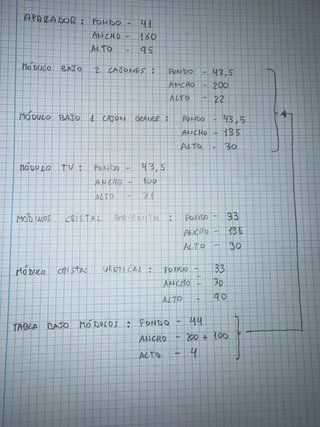 APARADOR : FONDO - 41
ANCHO - 160
ALTO - 95
MÓDULO BAJO 2 CAJONES : FONDO - 43,5
ANCHO - 200
ALTO - 22
MÓDULO BAJO 1 CAJON GRANDE : FONDO - 43,5
ANCHO - 135
ALTO - 30
MÓDULO TV : FONDO - 43,5
ANCHO - 100
ALTO - 21
MÓDULOS CRISTAL HORIZONTAL : FONDO - 33
ANCHO - 135
ALTO - 30
MÓDULO CRISTAL VERTICAL : FONDO - 33
ANCHO - 30
ALTO - 90
TABLA BAJO MÓDULOS : FONDO - 44
ANCHO - 200 + 100
ALTO - 4